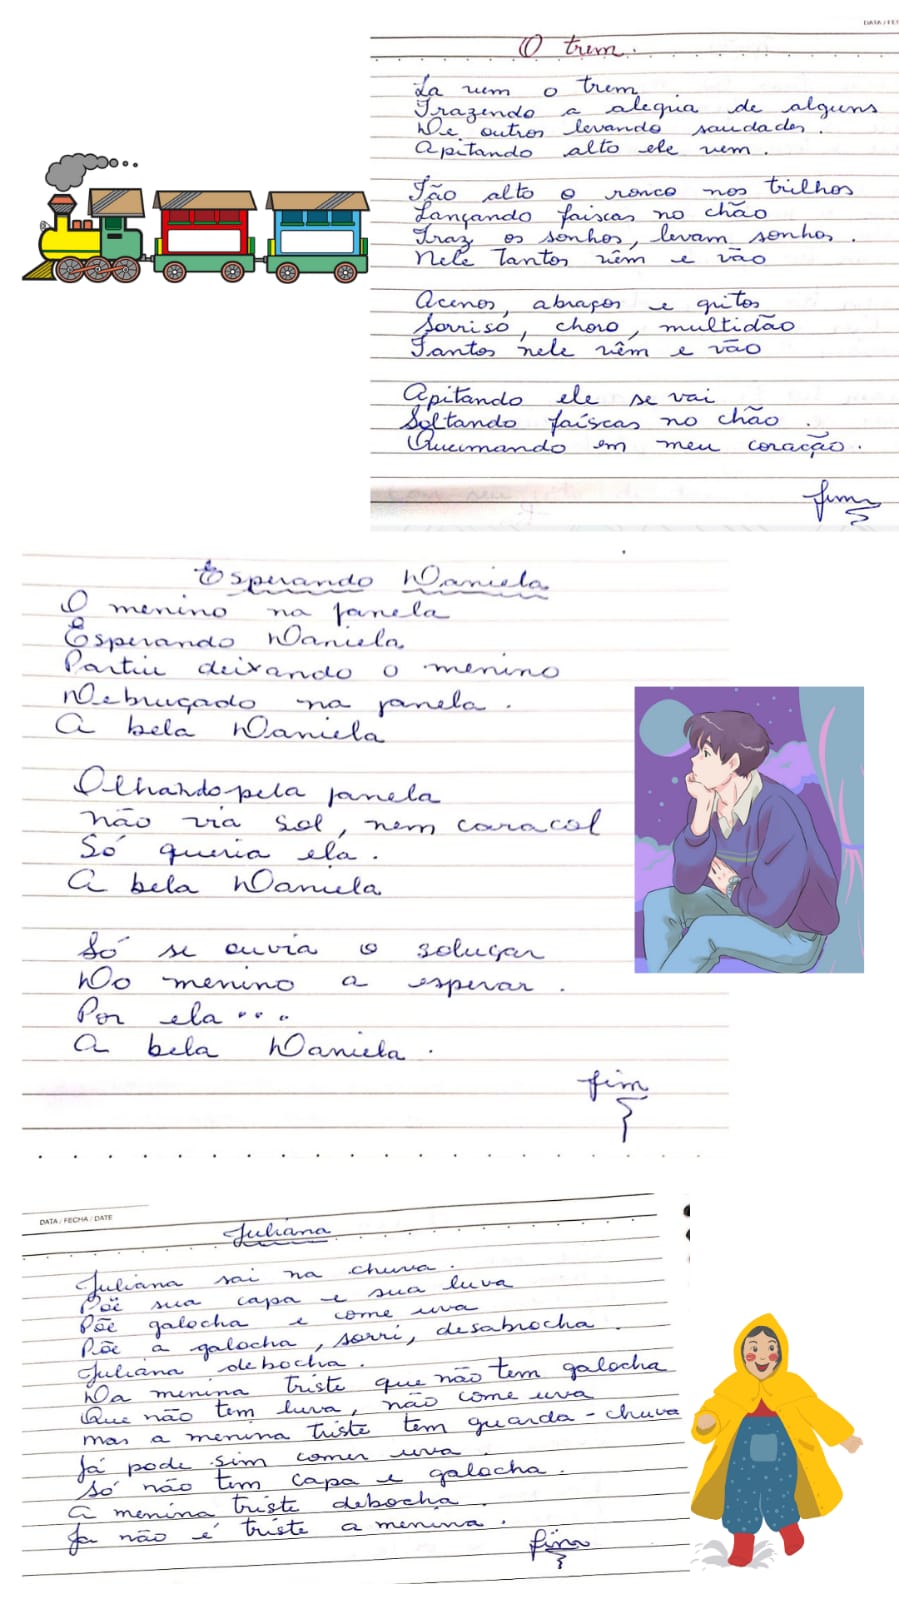 DATA / FE
O trem.
La vem o trem
Trazendo a alegria de alguns
De outros levando saudades.
Apitando alto ele vem.
Tão alto o ronco nos trilhos
Lançando faiscas no chão
Traz os sonhos, levam sonhos.
Nele Tantos vêm e vão
Acenos, abraços e gritos
Sorriso, choro, multidão
Tantos nele vêm e vão
Apitando ele se vai
Soltando faíscas no chão.
Queimando em meu coração.
fim
Esperando Daniela
O menino na janela
Esperando Daniela
Partiu deixando o menino
Debruçado na janela.
A bela Daniela
Olhando pela janela
não via sol, nem caracol
Só queria ela.
A bela Daniela
Só se ouvia o soluçar
Do menino a esperar.
Por ela...
A bela Daniela.
fim
DATA / FECHA / DATE
Juliana
Juliana sai na chuva.
Põe sua capa e sua luva
Põe galocha e come uva
Põe a galocha, sorri, desabrocha.
Juliana debocha.
Da menina triste que não tem galocha
Que não tem luva, não come uva
mas a menina triste tem guarda-chuva
Já pode sim comer uva.
Só não tem capa e galocha.
A menina triste debocha.
Ja não é triste a menina.
fim